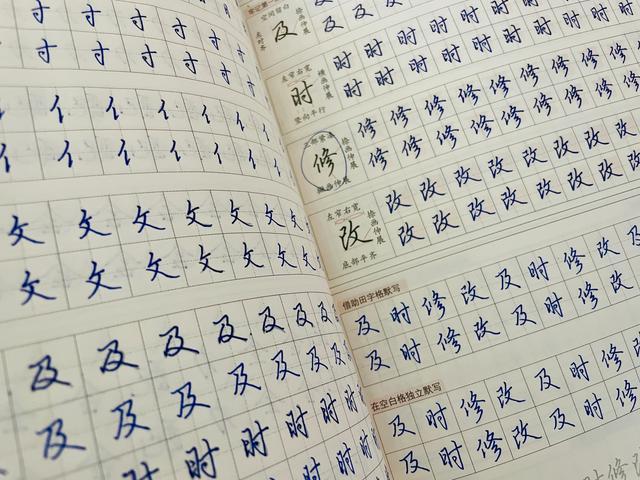 寸 寸 寸 寸 寸 寸
寸 寸 寸 寸 寸 寸
亻 亻 亻 亻 亻 亻 亻
亻 亻 亻 亻 亻 亻 亻
攵 攵 攵 攵 攵 攵 攵
攵 攵 攵 攵 攵 攵 攵
及 及 及 及 及 及 及
及 及 及 及 及 及 及
及 时 时 时 时 时
空间留白
及
捺画伸展
左窄右宽
时
横画伸展
竖向平行
时 时 时 时 时 时 时 时
时 时 时 时 时 时 时 时
修
捺画伸展
修 修 修 修 修 修 修 修
修 修 修 修 修 修 修 修
左窄右宽
改
捺画伸展
底部平齐
改 改 改 改 改 改 改 改
改 改 改 改 改 改 改 改
借助田字格默写
及 时 修 改 及 时 修 改 及
及 时 修 改 及 时 修 改
在空白格独立默写
及 时 修 改 及 时 修 改
及 时 修 改 及 时 修